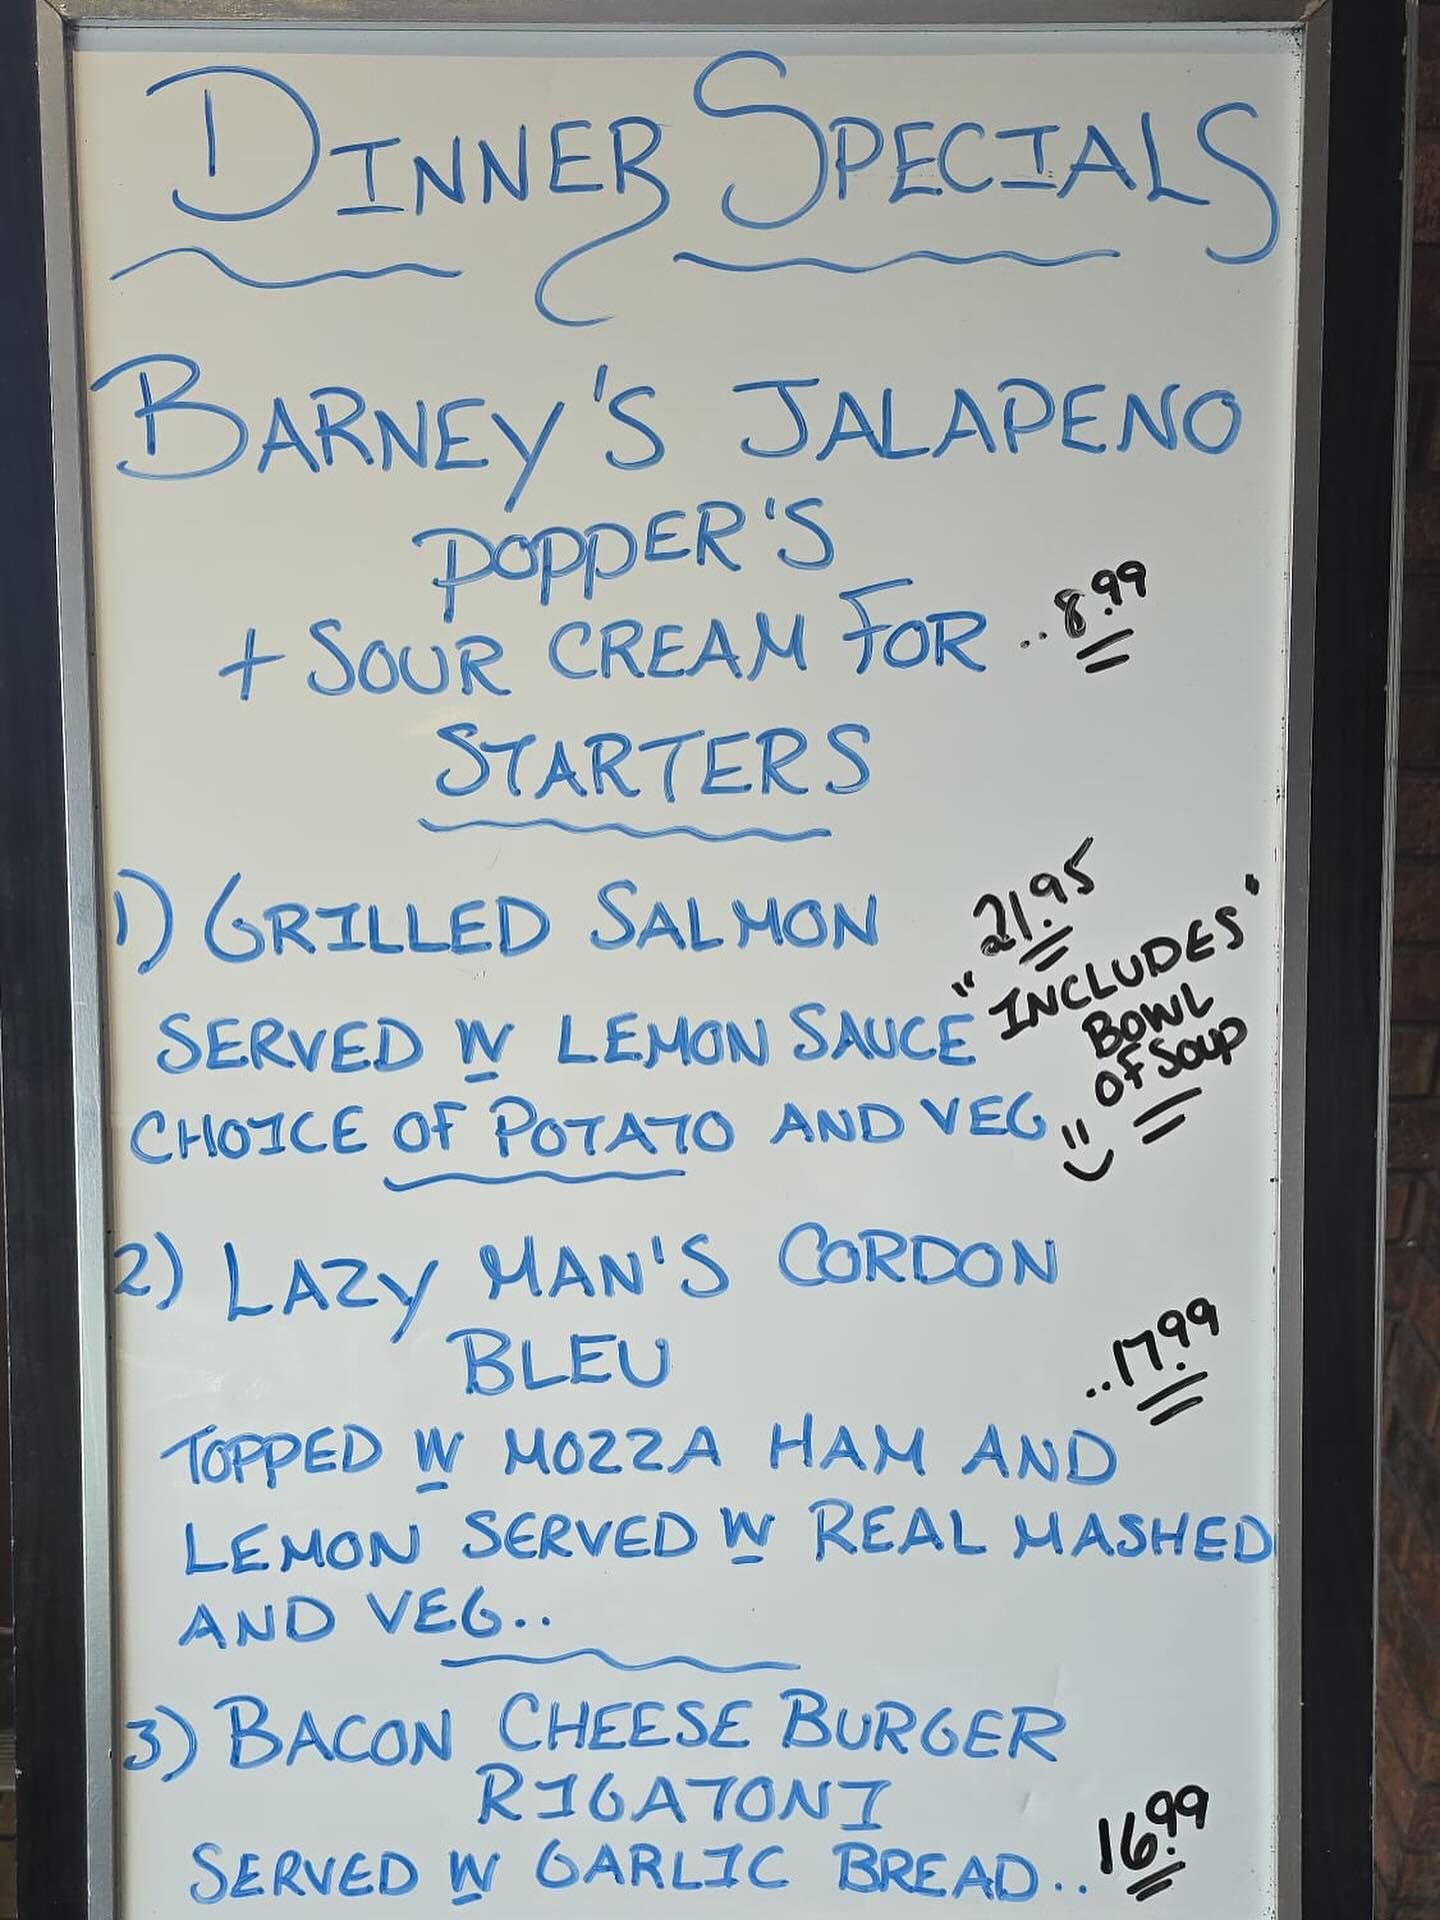 DINNER SPECIALS
BARNEY'S JALAPENO
POPPER'S
+ SOUR CREAM FOR ..8.99
STARTERS
1) GRILLED SALMON 21.95
"INCLUDES"
SERVED W LEMON SAUCE BOWL
OF SOUP
CHOICE OF POTATO AND VEG
2) LAZY MAN'S CORDON
BLEU ..17.99
TOPPED W MOZZA HAM AND
LEMON SERVED W REAL MASHED
AND VEG..
3) BACON CHEESE BURGER
RIGATONI
SERVED W GARLIC BREAD.. 16.99